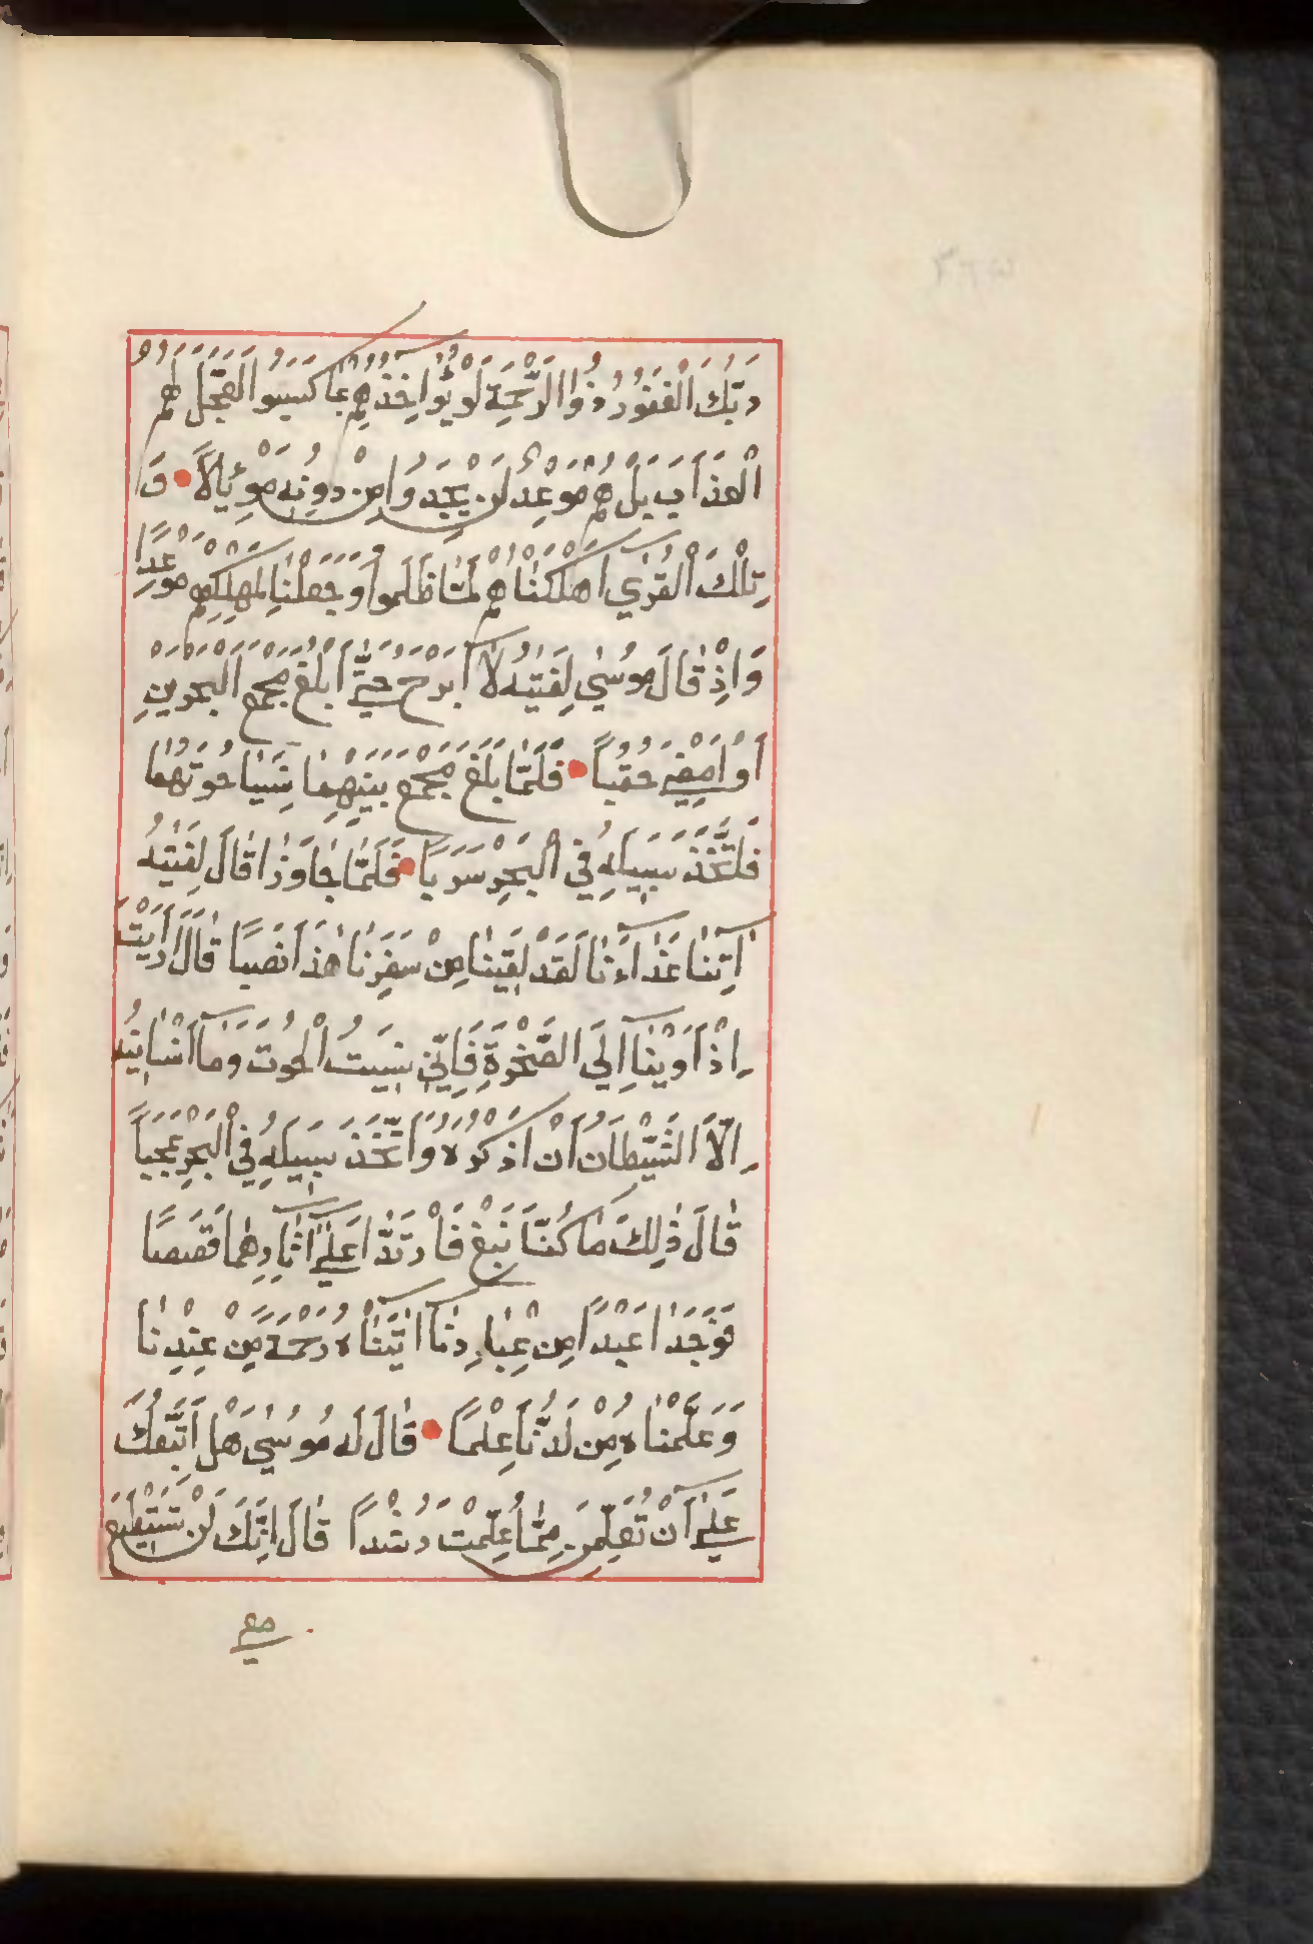 رَبُّكَ الْغَفُورُ ذُوا الرَّحْمَةِ لَوْ يُؤَاخِذُهُمْ بِمَا كَسَبُوا لَعَجَّلَ لَهُمُ
الْعَذَابَ بَلْ لَهُمْ مَوْعِدٌ لَنْ يَجِدُوا مِنْ دُونِهِ مَوْئِلاً وَ
تِلْكَ الْقُرٰي اَهْلَكْنَاهُمْ لَمَّا ظَلَمُوا وَجَعَلْنَا لِمَهْلِكِهِمْ مَوْعِدًا
وَاِذْ قَالَ مُوسٰي لِفَتٰيهُ لَآ اَبْرَحُ حَتّٰي اَبْلُغَ مَجْمَعَ الْبَحْرَيْنِ
اَوْ اَمْضِيَ حُقُبًا فَلَمَّا بَلَغَ مَجْمَعَ بَيْنِهِمَا نَسِيَا حُوتَهُمَا
فَاتَّخَذَ سَبِيلَهُ فِي الْبَحْرِ سَرَبًا فَلَمَّا جَاوَزَا قَالَ لِفَتٰيهُ
اٰتِنَا غَدَآءَنَا لَقَدْ لَقِينَا مِنْ سَفَرِنَا هٰذَا نَصَبًا قَالَ اَرَاَيْتَ
اِذْ اَوَيْنَآ اِلَي الصَّخْرَةِ فَاِنِّي نَسِيتُ الْحُوتَ وَمَآ اَنْسَانِيهُ
اِلَّا الشَّيْطَانُ اَنْ اَذْكُرَهُ وَاتَّخَذَ سَبِيلَهُ فِي الْبَحْرِ عَجَبًا
قَالَ ذٰلِكَ مَا كُنَّا نَبْغِ فَارْتَدَّا عَلٰٓي اٰثَارِهِمَا قَصَصًا
فَوَجَدَا عَبْدًا مِنْ عِبَادِنَآ اٰتَيْنَاهُ رَحْمَةً مِنْ عِنْدِنَا
وَعَلَّمْنَاهُ مِنْ لَدُنَّا عِلْمًا قَالَ لَهُ مُوسٰي هَلْ اَتَّبِعُكَ
عَلٰٓي اَنْ تُعَلِّمَنِ مِمَّا عُلِّمْتَ رُشْدًا قَالَ اِنَّكَ لَنْ تَسْتَطِيعَ
معي